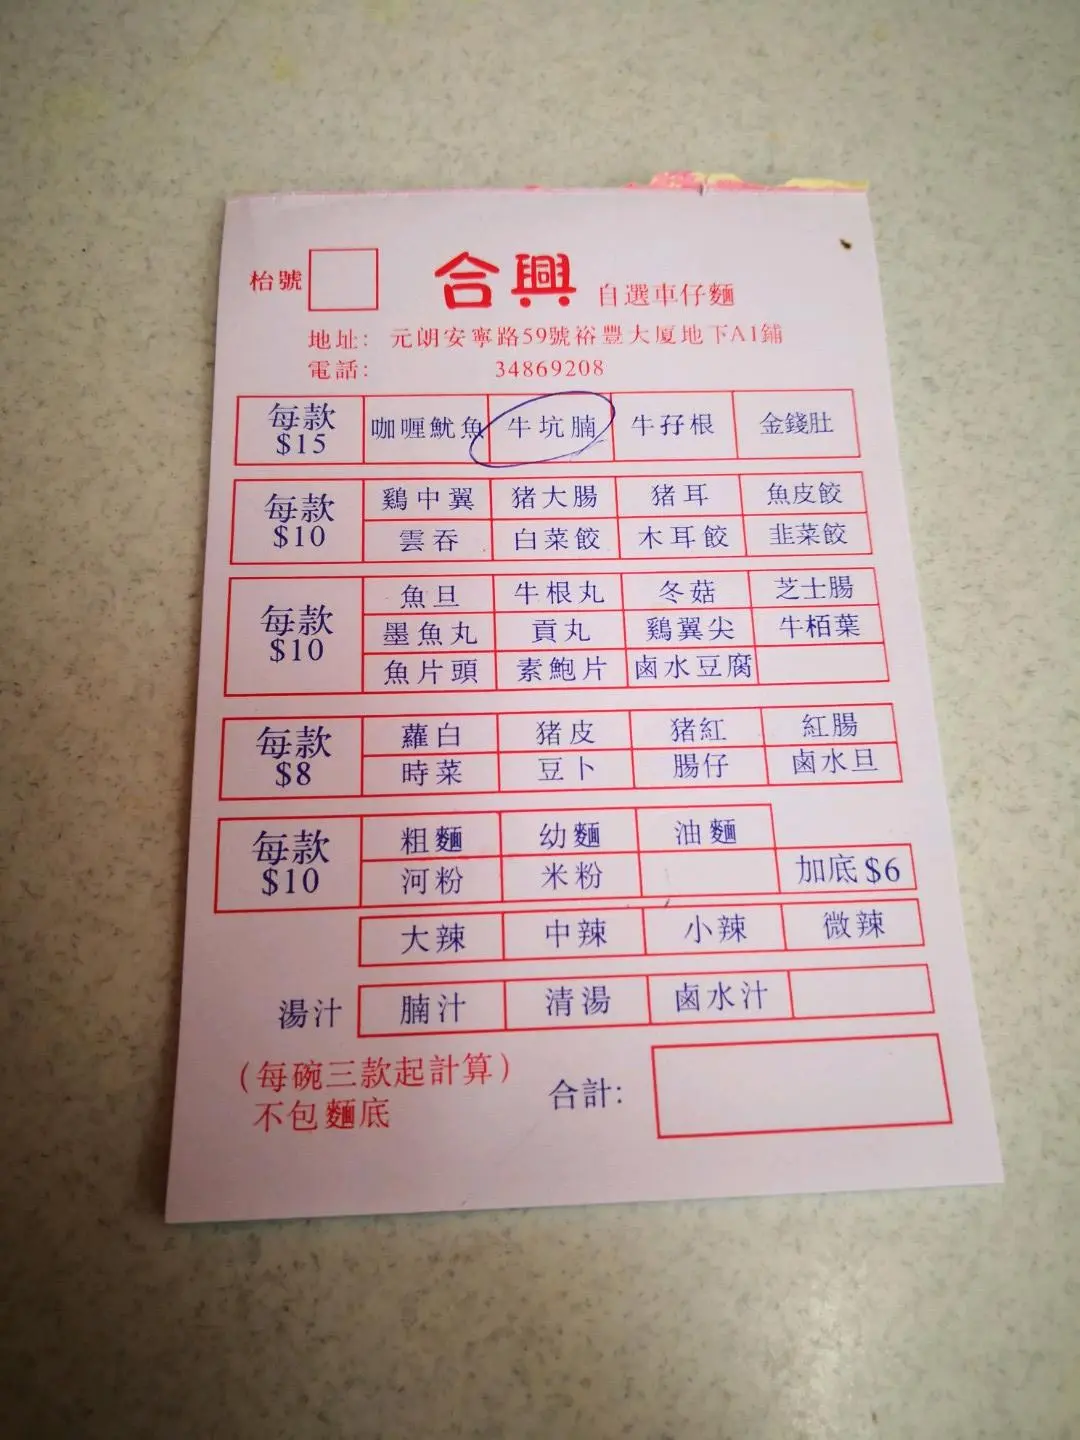 枱號 合興 自選車仔麵
地址: 元朗安寧路59號裕豐大厦地下A1鋪
電話: 34869208
每款 $15 咖喱魷魚 牛坑腩 牛孖根 金錢肚
每款 $10 鷄中翼 猪大腸 猪耳 魚皮餃
雲吞 白菜餃 木耳餃 韭菜餃
每款 $10 魚旦 牛根丸 冬菇 芝士腸
墨魚丸 貢丸 鷄翼尖 牛栢葉
魚片頭 素鮑片 鹵水豆腐
每款 $8 蘿白 猪皮 猪紅 紅腸
時菜 豆卜 腸仔 鹵水旦
每款 $10 粗麵 幼麵 油麵
河粉 米粉 加底 $6
大辣 中辣 小辣 微辣
湯汁 腩汁 清湯 鹵水汁
(每碗三款起計算)
不包麵底 合計: